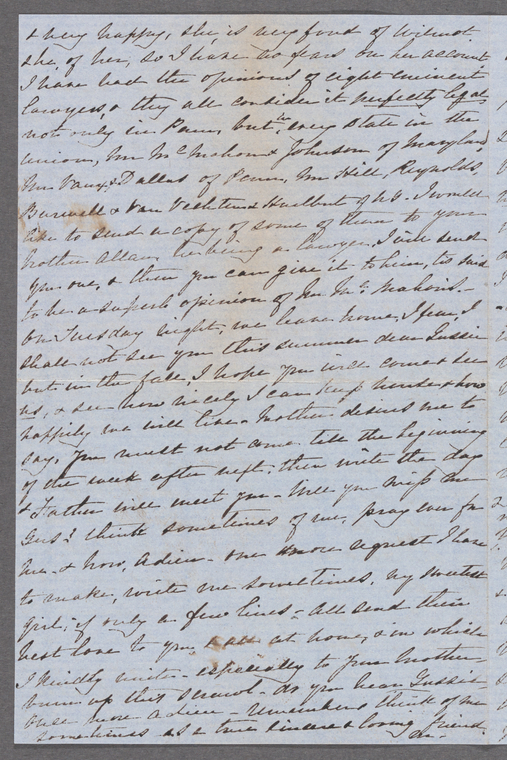 & very happy, she is very fond of Wilmot
& he of her, so I have no fears on her account
I have had the opinions of eight eminent
lawyers, & they all consider it perfectly legal
not only in Penn, but in every State in the
union, Mr McMahon & Johnson of Maryland
Mr Vaux & Dallas of Penn, Mr Hill, Reynolds
& Van Vechten & of N.Y. I would
like to send a copy of some of them to your
brother Allan, he being a lawyer, I will send
you one, & then you can give it to him, tis said
to be a superb opinion of Mr McMahons -
On Tuesday night, we leave home, I fear, I
shall not see you this summer dear Gussie
but in the fall, I hope you will come & see
us, & see how nicely I can keep house & how
happily we will live - Mother desires me to
say, you must not come till the beginning
of the week after next, then write the day
& Father will meet you - Will you miss me
Gus? think sometimes of me, pray ever for
me - & now, Adieu - one more request I have
to make, write me sometimes, my sweetest
girl, if only a few lines - All send their
best love to you, & all at home, & in which
I kindly unite - especially to your Mother -
burn up this scrawl - dear Gussie
once more adieu - remember & think of me
sometimes as a true sincere & loving friend.